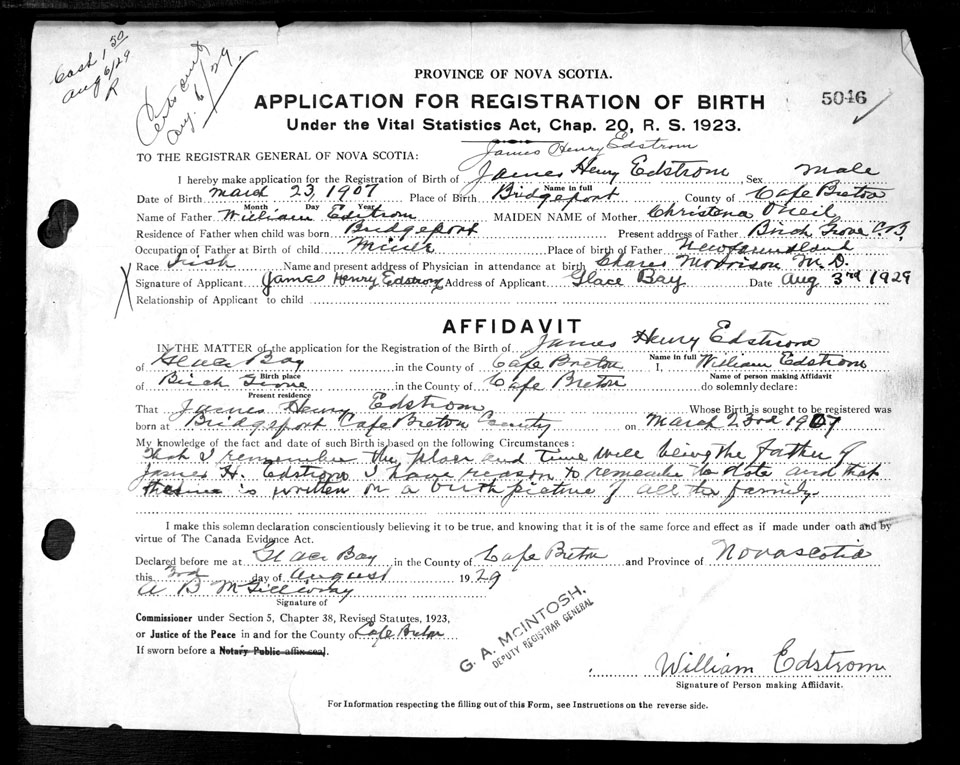 Cash 1 50
Aug 6/29
R
Certs sent
Aug. 6/29.
PROVINCE OF NOVA SCOTIA.
APPLICATION FOR REGISTRATION OF BIRTH
5046
Under the Vital Statistics Act, Chap. 20, R. S. 1923.
James Henry Edstrom
TO THE REGISTRAR GENERAL OF NOVA SCOTIA:
I hereby make application for the Registration of Birth of James Henry Edstrom, Sex Male
Name in full
Date of Birth March 23, 1907 Place of Birth Bridgeport County of Cape Breton
Month Day Year
Name of Father William Edstrom MAIDEN NAME of Mother Christena O'neil
Residence of Father when child was born Bridgeport Present address of Father Birch Grove C.B.
Occupation of Father at Birth of child Miner Place of birth of Father Newfoundland
Race Irish Name and present address of Physician in attendance at birth Charles Morrison M.D.
Signature of Applicant James Henry Edstrom Address of Applicant Glace Bay Date Aug 3rd 1929
Relationship of Applicant to child
AFFIDAVIT
IN THE MATTER of the application for the Registration of the Birth of James Henry Edstrom
Name in full
of Glace Bay in the County of Cape Breton I, William Edstrom
Birth place Name of person making Affidavit
of Birch Grove in the County of Cape Breton do solemnly declare:
Present residence
That James Henry Edstrom Whose Birth is sought to be registered was
born at Bridgeport Cape Breton County on March 23rd 1907
My knowledge of the fact and date of such Birth is based on the following Circumstances:
That I remember the place and time well being the father of
James H. Edstrom I have reason to remember the date and that
the same is written on a birth picture of all the family.
I make this solemn declaration conscientiously believing it to be true, and knowing that it is of the same force and effect as if made under oath and by
virtue of The Canada Evidence Act.
Declared before me at Glace Bay in the County of Cape Breton and Province of Nova Scotia
this 3rd day of August 1929
A B McGillivray
Signature of
Commissioner under Section 5, Chapter 38, Revised Statutes, 1923,
or Justice of the Peace in and for the County of Cape Breton
If sworn before a Notary Public affix seal.
G. A. MCINTOSH,
DEPUTY REGISTRAR GENERAL
William Edstrom
Signature of Person making Affidavit.
For Information respecting the filling out of this Form, see Instructions on the reverse side.